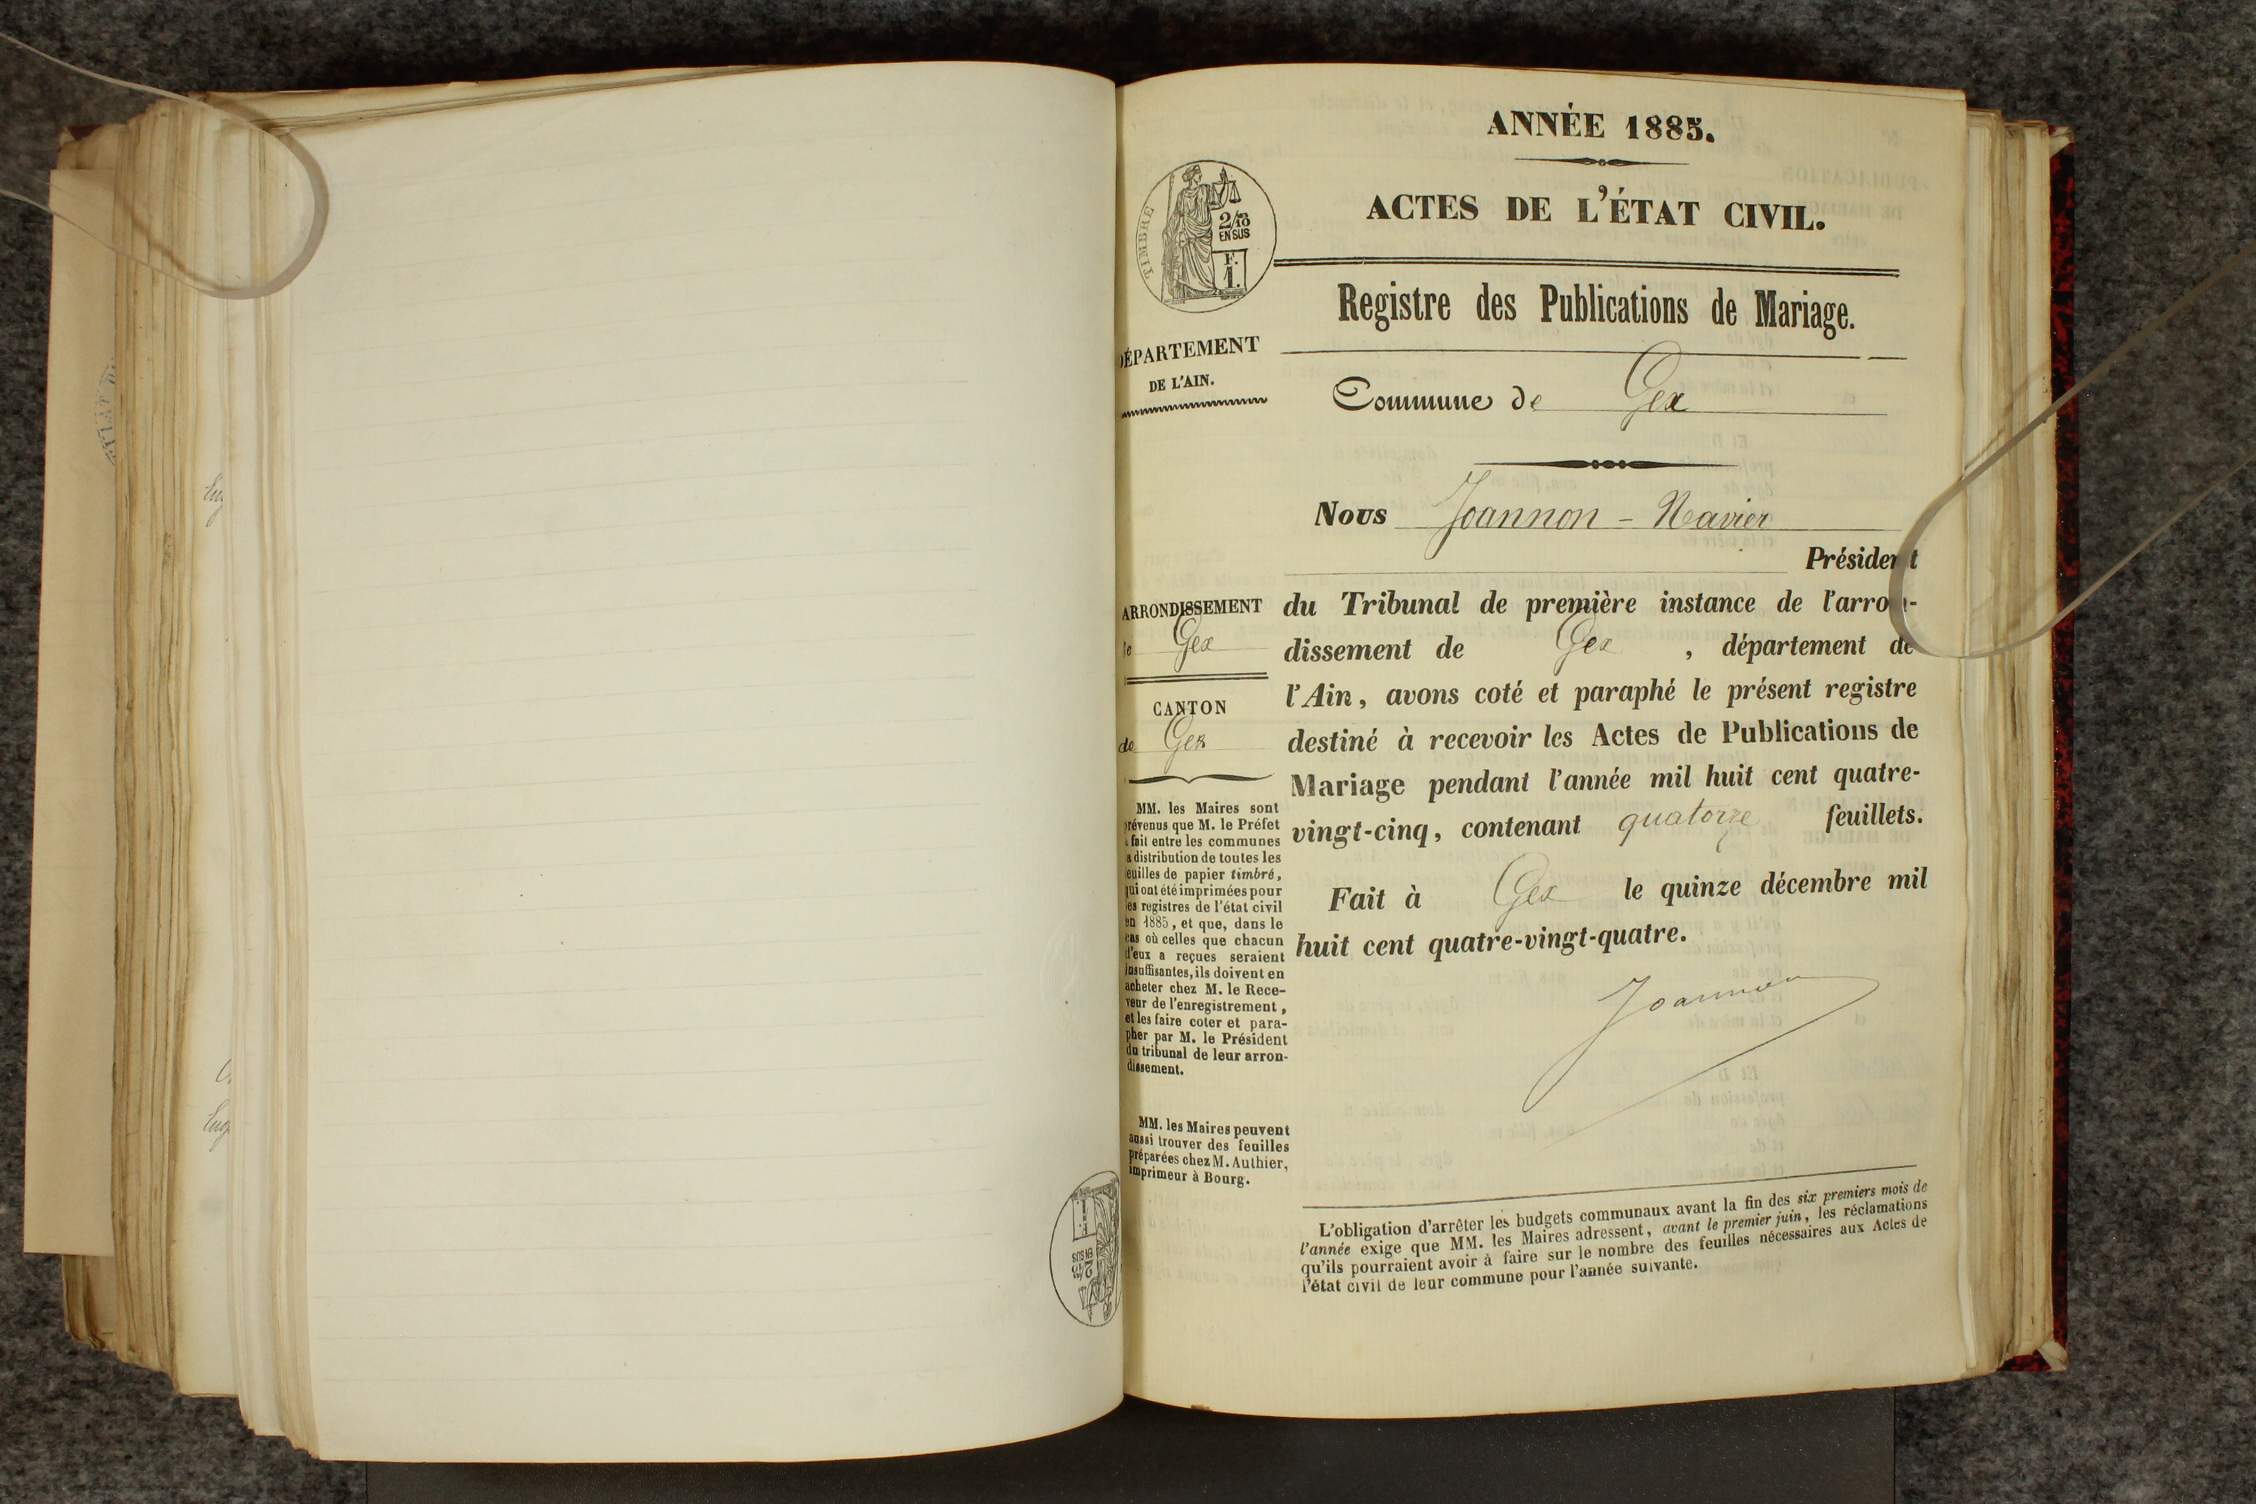 ANNÉE 1885.
ACTES DE L'ÉTAT CIVIL.
TIMBRE
2/10
EN SUS
F.
1.
Registre des Publications de Mariage.
DÉPARTEMENT
DE L'AIN.
Commune de Gex
Nous Joannon - Navier
Président
du Tribunal de première instance de l'arron-
dissement de Gex, département de
l'Ain, avons coté et paraphé le présent registre
destiné à recevoir les Actes de Publications de
Mariage pendant l'année mil huit cent quatre-
vingt-cinq, contenant quatorze feuillets.
Fait à Gex le quinze décembre mil
huit cent quatre-vingt-quatre.
Joannon
ARRONDISSEMENT
de Gex
CANTON
de Gex
MM. les Maires sont
prévenus que M. le Préfet
a fait entre les communes
la distribution de toutes les
feuilles de papier timbré,
qui ont été imprimées pour
les registres de l'état civil
en 1885, et que, dans le
cas où celles que chacun
d'eux a reçues seraient
insuffisantes, ils doivent en
acheter chez M. le Rece-
veur de l'enregistrement,
et les faire coter et para-
pher par M. le Président
du tribunal de leur arron-
dissement.
MM. les Maires peuvent
aussi trouver des feuilles
préparées chez M. Authier,
imprimeur à Bourg.
L'obligation d'arrêter les budgets communaux avant la fin des six premiers mois de
l'année exige que MM. les Maires adressent, avant le premier juin, les réclamations
qu'ils pourraient avoir à faire sur le nombre des feuilles nécessaires aux Actes de
l'état civil de leur commune pour l'année suivante.